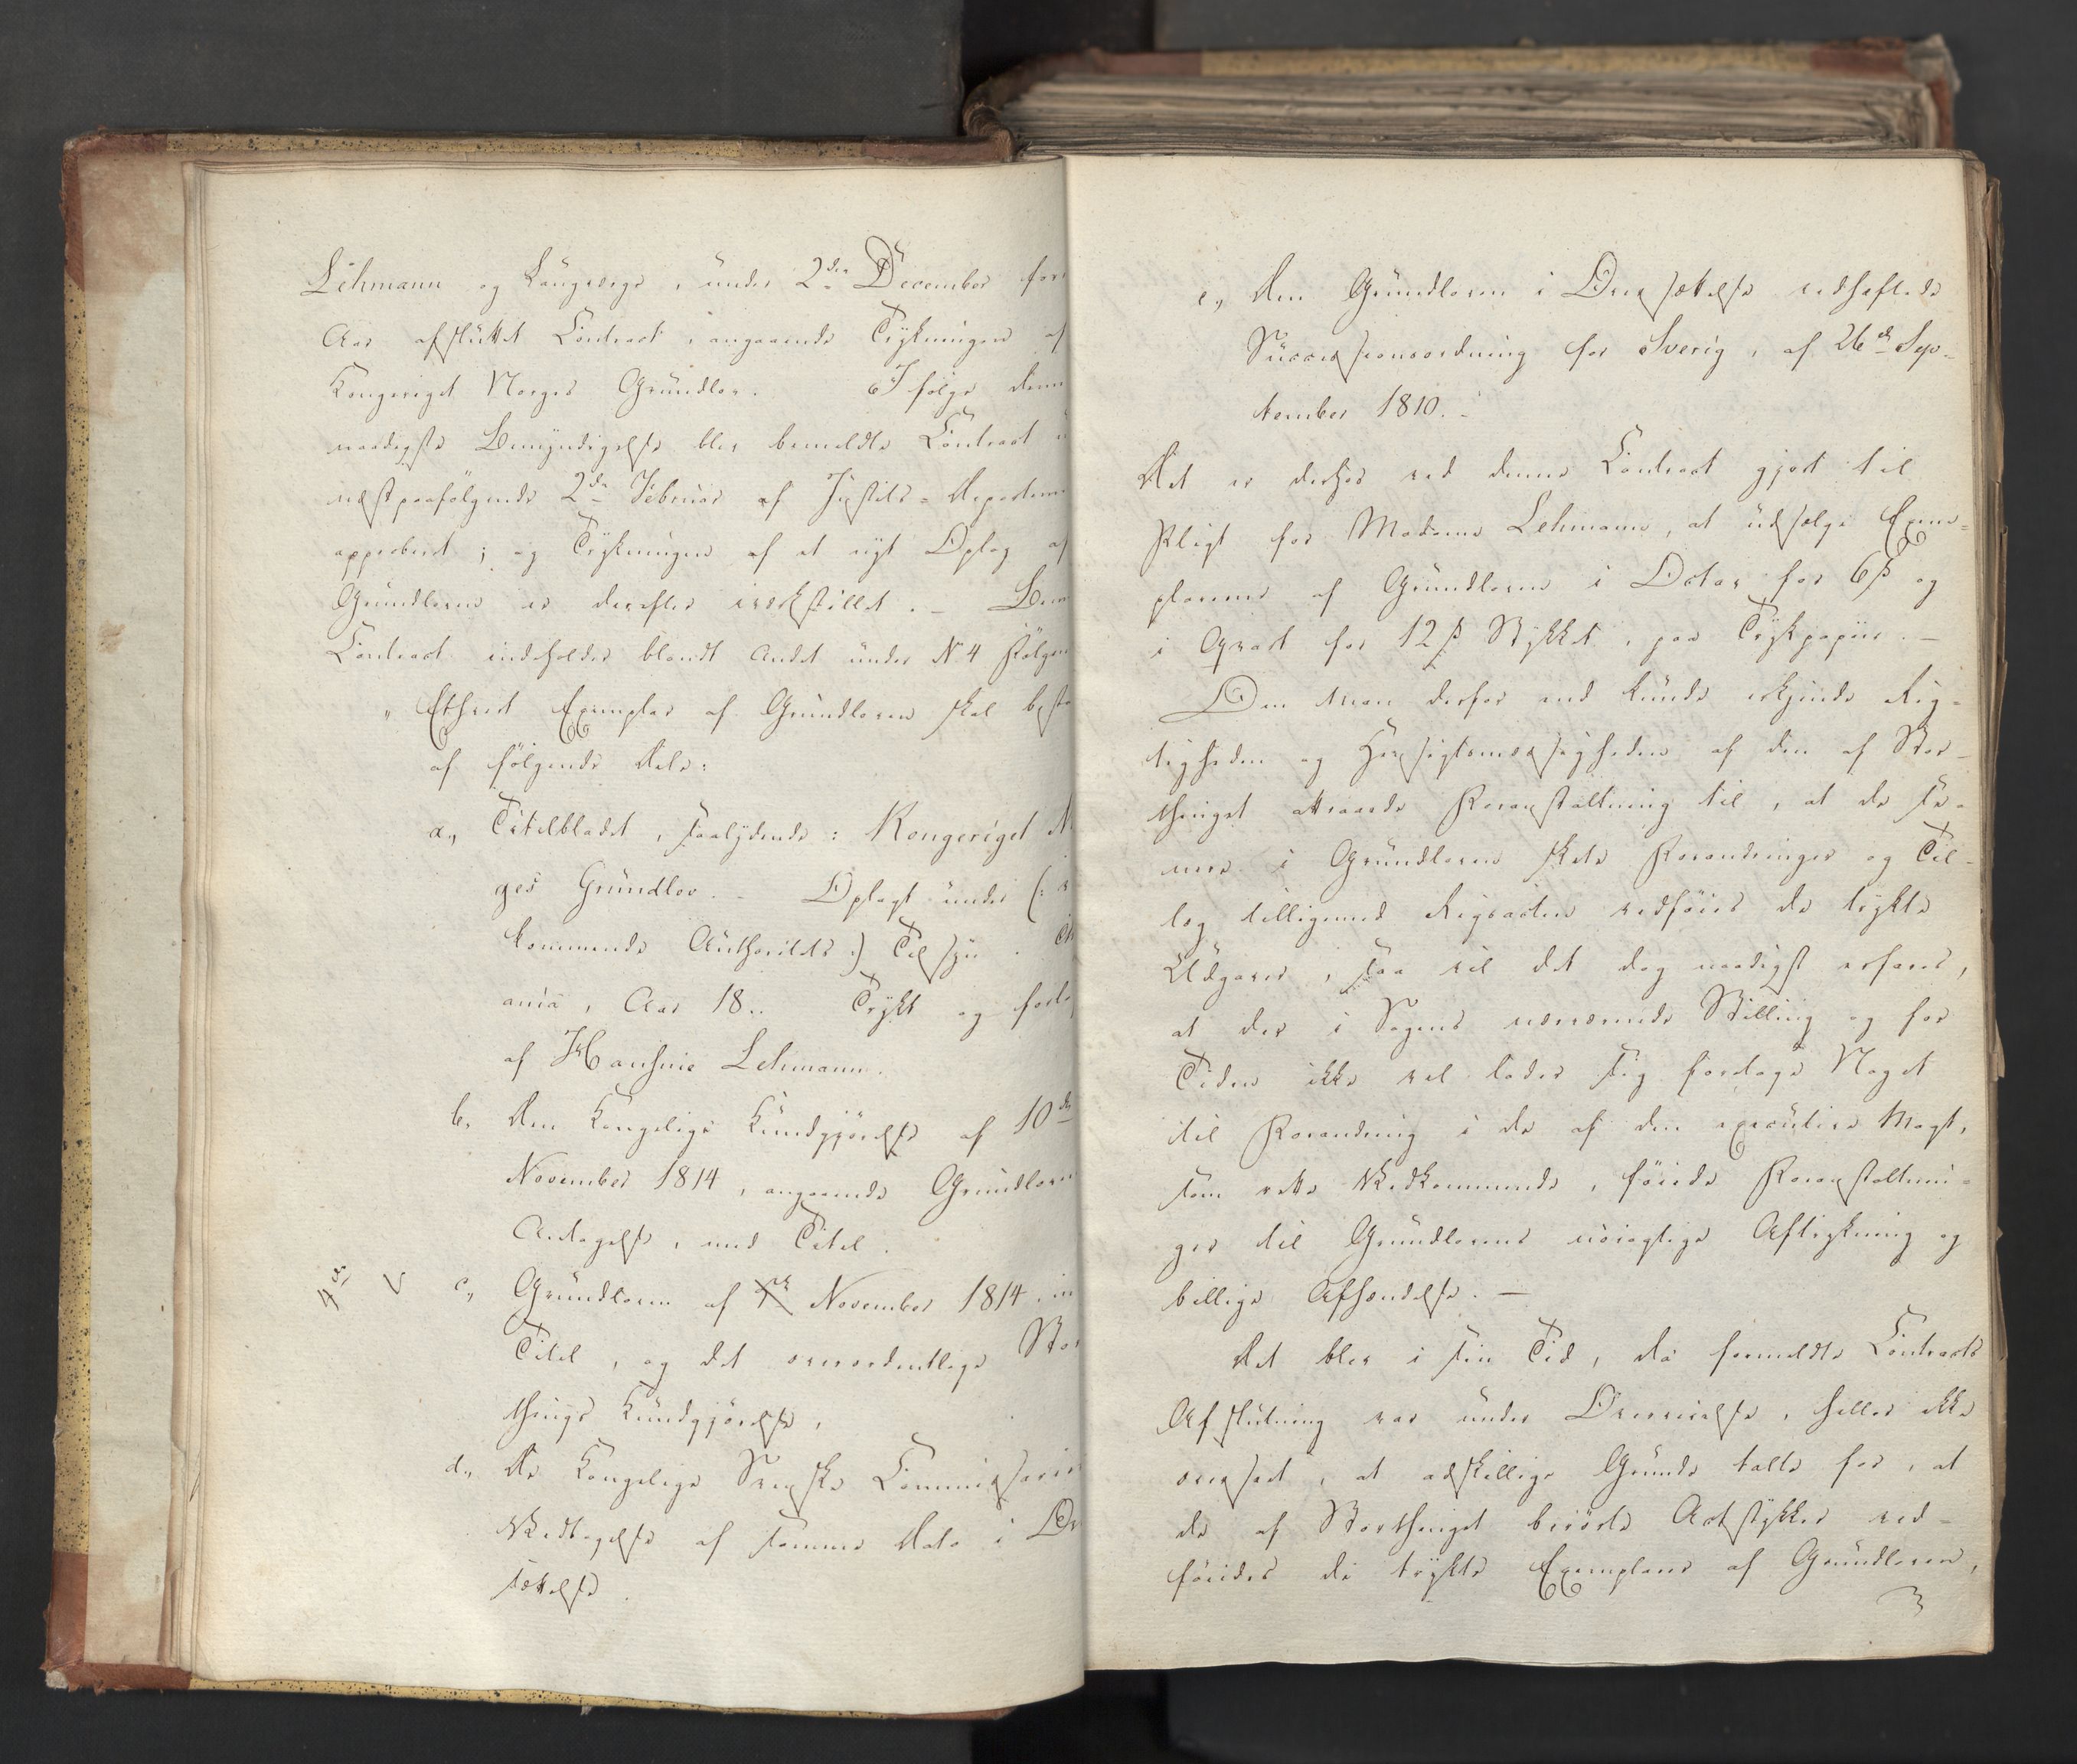 Lehmann og Laugværge, under 2den December for
Aar afsluttet Contract, angaaende Trykningen af
Kongeriget Norges Grundlov. Ifølge denn
naadigste Bemyndigelse blev bemeldte Contract u
næstpaafølgende 2den Februar af Justits-Departem
approbert; og Trykningen af et nyt Oplag af
Grundloven er derefter iværkstillet. – Bem
Contract indeholder blandt Andet under N 4 Følgen
„Ethvert Exemplar af Grundloven skal besta
af følgende Dele:
a., Titelbladet, saalydende: Kongeriget N
ges Grundlov. – Oplagt under (: v
kommende Authoritets :) Tilsyn. Ch
ania, Aar 18.. Trykt og forla
af Hansine Lehmann.
b., Den Kongelige Kundgjørelse af 10de
November 1814, angaaende Grundloven
Antagelse, med Titel.
4de V c., Grundloven af November 1814, m
Titel, og det overordentlige Stor
things Kundgjørelse,
d., De Kongelige Svenske Commissarier
Vedtagelse af samme Dato i Ov
sættelse.
e., Den Grundloven i Oversættelse vedheftede
Successionsordning for Sverig, af 26de Sep-
tember 1810. –
Det er derhos ved denne Contract gjort til
Pligt for Madame Lehmann, at udsælge Exem-
plarene af Grundloven i Octav for 6 ß og
i Qvart for 12 ß Stykket, paa Trykpapiir. –
Om man derfor end kunde erkjende Rig-
tigheden og Hensigtsmæssigheden af den af Stor-
thinget attraaede Foranstaltning til, at de se-
nere i Grundloven skete Forandringer og Til-
læg tilligemed Rigsacten vedføies de trykte
Udgaver, saa vil det dog naadigst erfares,
at der i Sagens nærværende Stilling og for
Tiden ikke vel lader sig foretage Noget
til Forandring i de af den executive Magt,
som rette Vedkommende, føiede Foranstaltnin-
ger til Grundlovens nøiagtige Aftrykning og
billige Afhændelse. –
Det blev i sin Tid, da formeldte Contracts
Afslutning var under Overveielse, heller ikke
overseet, at adskillige Grunde talte for, at
de af Storthinget berørte Actstykker ved-
føiedes de trykte Exemplarer af Grundloven,